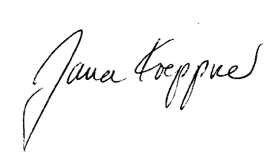 Jana Koeppner